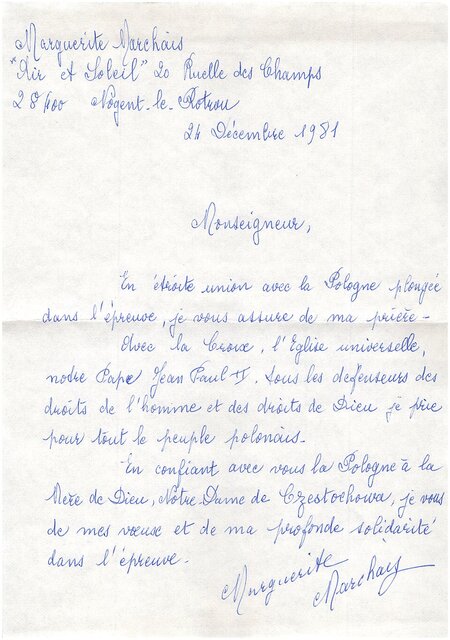 Marguerite Marchais
"Air et Soleil" 20 Ruelle des Champs
28400 Nogent-le-Rotrou
24 Décembre 1981
Monseigneur,
En étroite union avec la Pologne plongée
dans l'épreuve, je vous assure de ma prière-
Avec la Croix, l'Eglise universelle,
notre Pape Jean Paul II. tous les défenseurs des
droits de l'homme et des droits de Dieu je prie
pour tout le peuple polonais-
En confiant avec vous la Pologne à la
Mère de Dieu, Notre-Dame de Czestochowa, je vous
de mes vœux et de ma profonde solidarité
dans l'épreuve-
Marguerite
Marchais